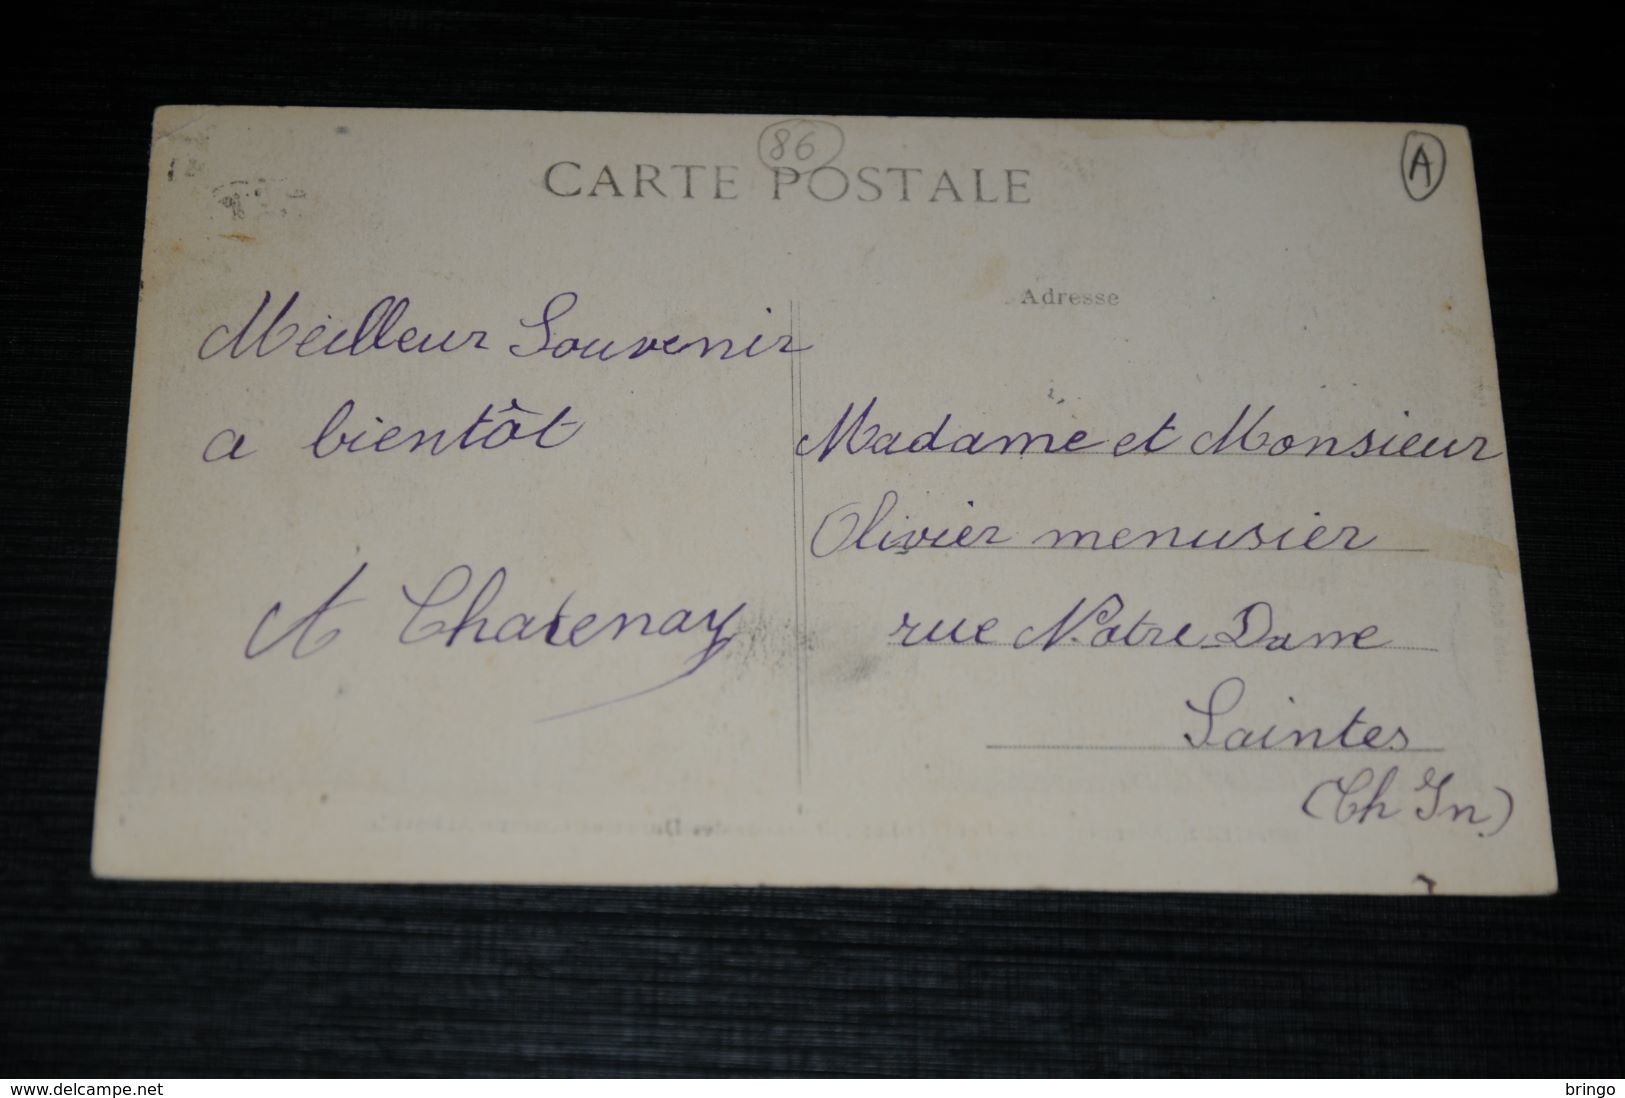 86
CARTE POSTALE
A
Adresse
Meilleur Souvenir
a bientôt
A Chatenay
Madame et Monsieur
Olivier menusier
rue Notre-Dame
Saintes
(Ch In.)
www.delcampe.net
bringo